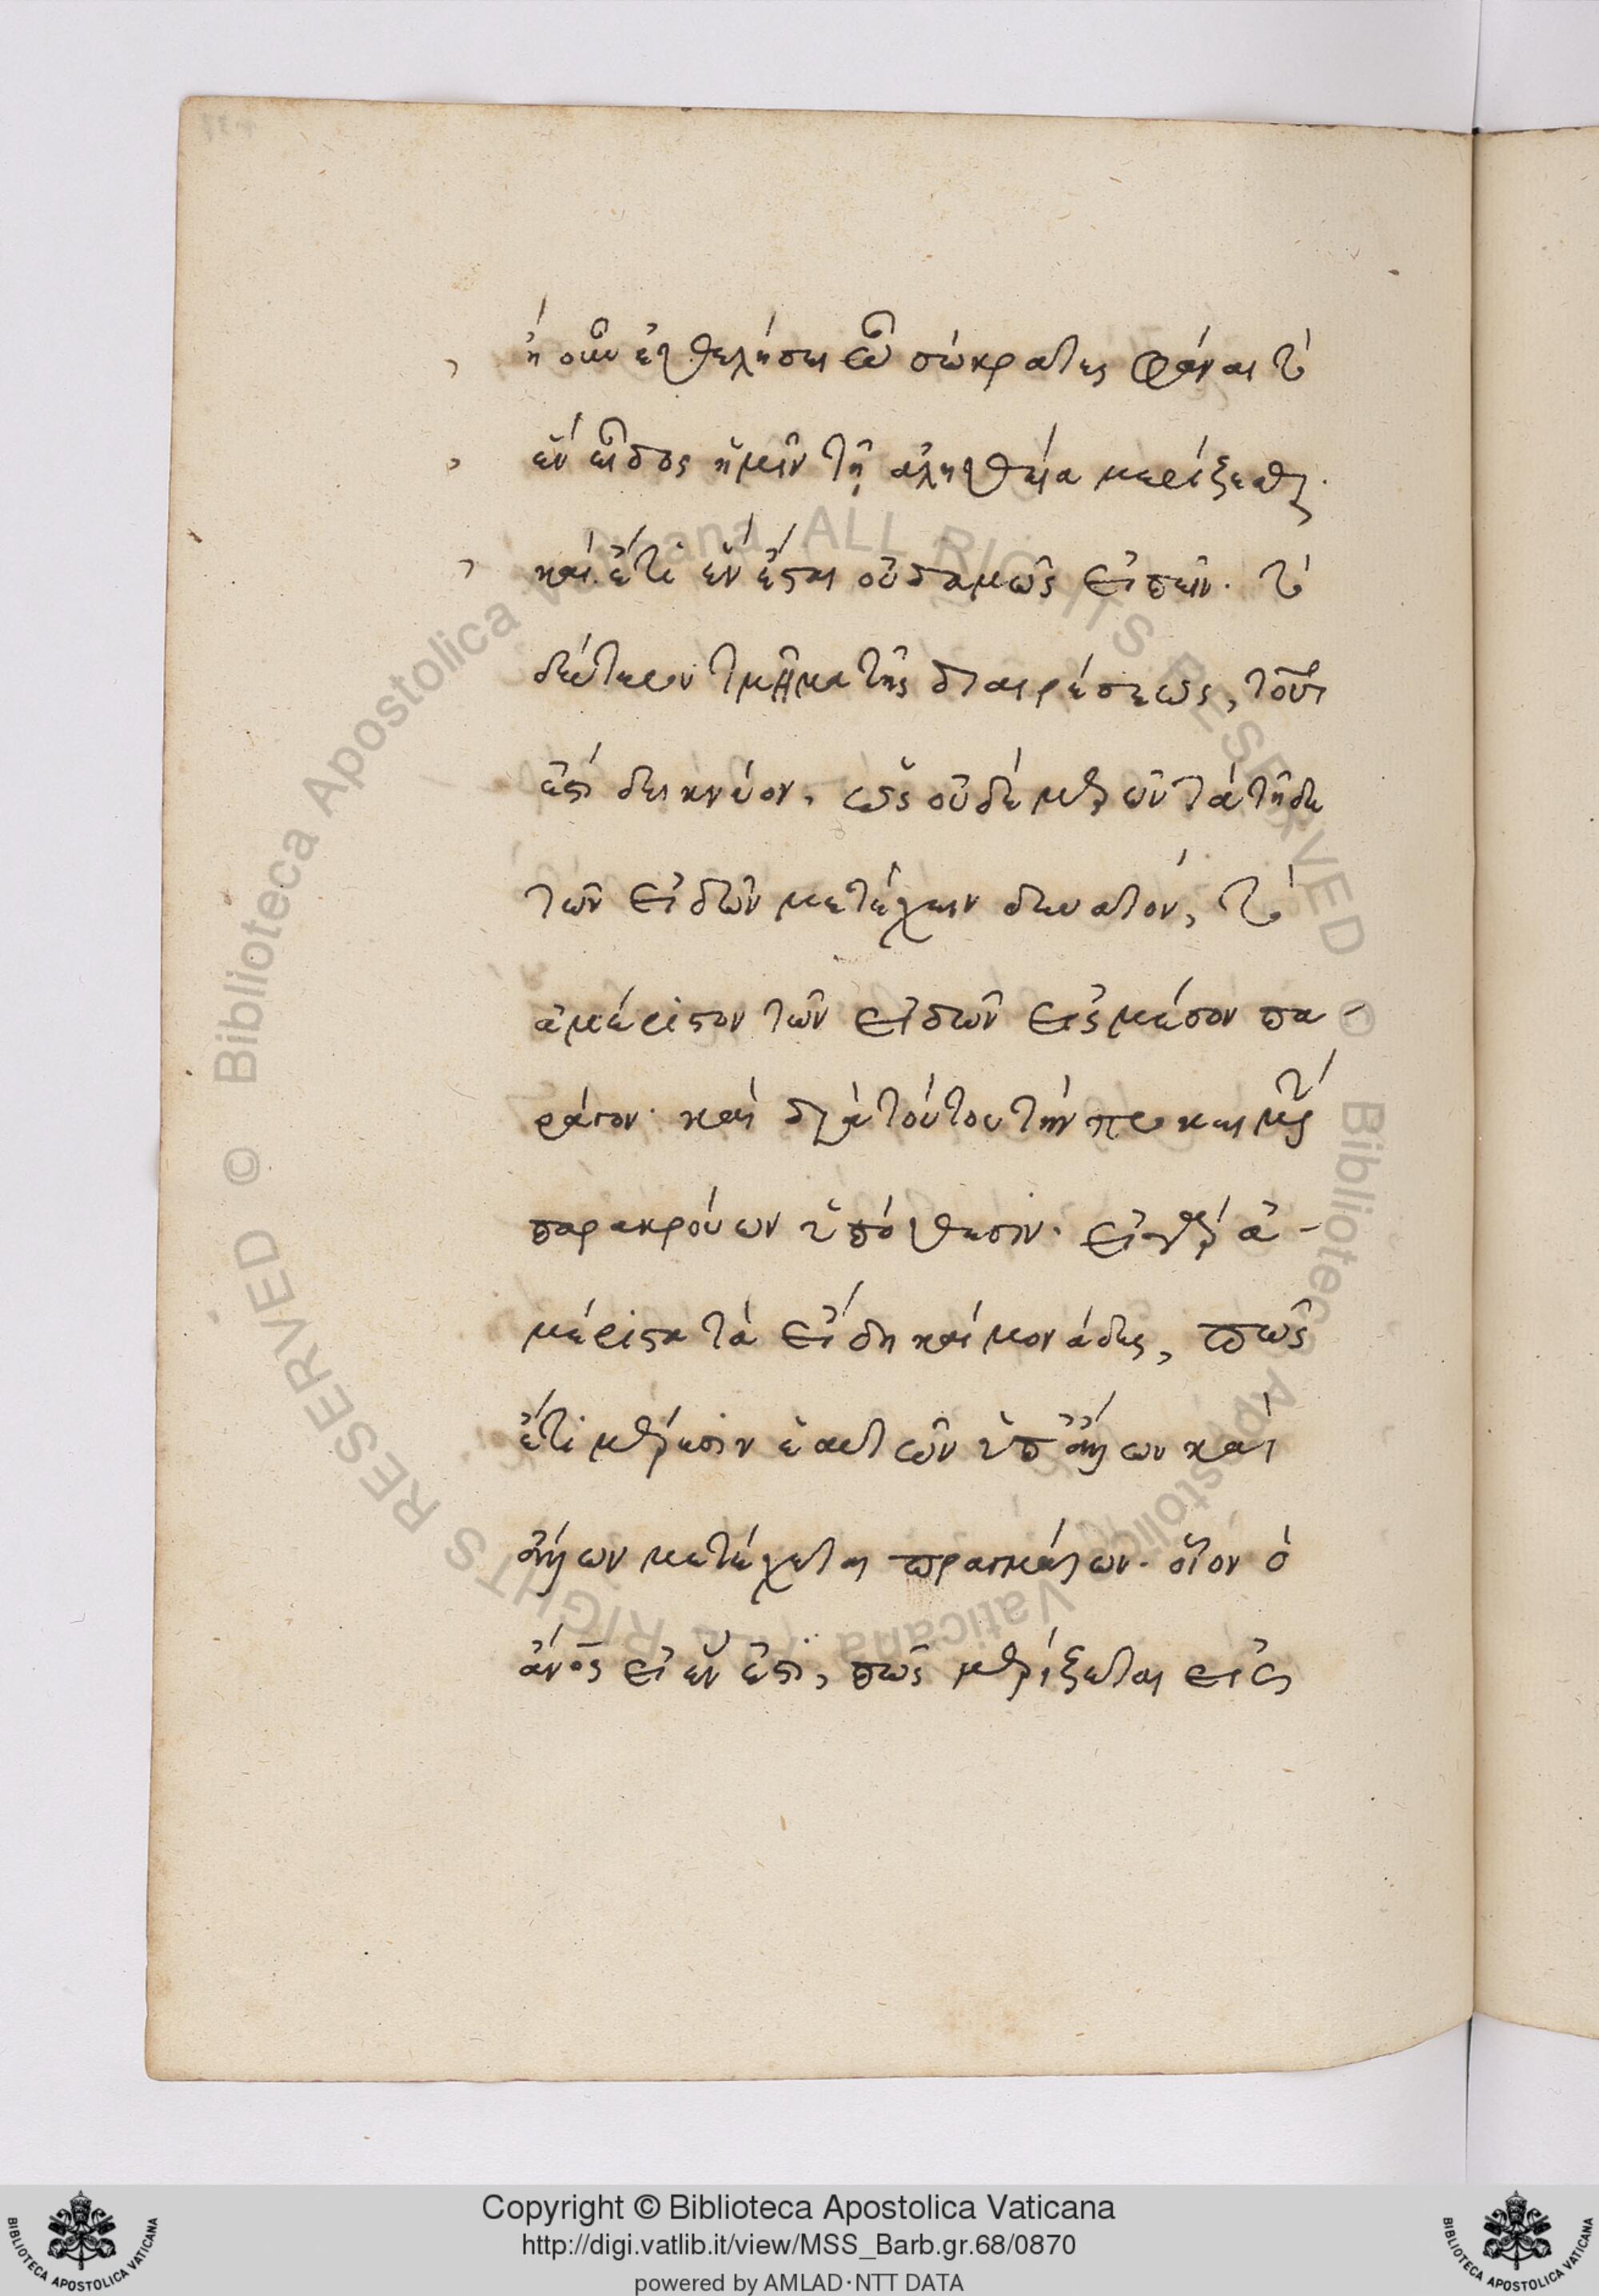 ἢ οὖν ἐθελήσεις ὦ σώκρατες φάναι τὸ
ἓν εἶδος ἡμῖν τῇ ἀληθεία μερίζεσθαι.
καὶ ἔτι ἓν ἔσται οὐδαμῶς εἰπεῖν. τὸ
δεύτερον τμῆμα τῆς διαιρέσεως, τοῦτ
ἐστὶ δεικνύον, ὡς οὐδὲ μερῶν τὰ τῇδε
τῶν εἰδῶν μετέχειν δυνατόν, τὸ
ἀμέριστον τῶν εἰδῶν εἰς μέσον πα-
ράγον. καὶ διὰ τούτου τὴν προκειμένην
παρακρούων ὑπόθεσιν. εἰ γὰρ ἀ-
μέριστα τὰ εἴδη καὶ μονάδες, πῶς
ἔτι μέρεσιν ἑαυτῶν ὑπ ἄλλων καὶ
ἄλλων μετέχεται πραγμάτων. οἷον ὁ
ἄνος εἰ ἕν ἐστι, πῶς μερίζεται εἰς
Copyright © Biblioteca Apostolica Vaticana
http://digi.vatlib.it/view/MSS_Barb.gr.68/0870
powered by AMLAD·NTT DATA
BIBLIOTECA APOSTOLICA VATICANA
BIBLIOTECA APOSTOLICA VATICANA
© Biblioteca Apostolica Vaticana ALL RIGHTS RESERVED
© Biblioteca Apostolica Vaticana ALL RIGHTS RESERVED